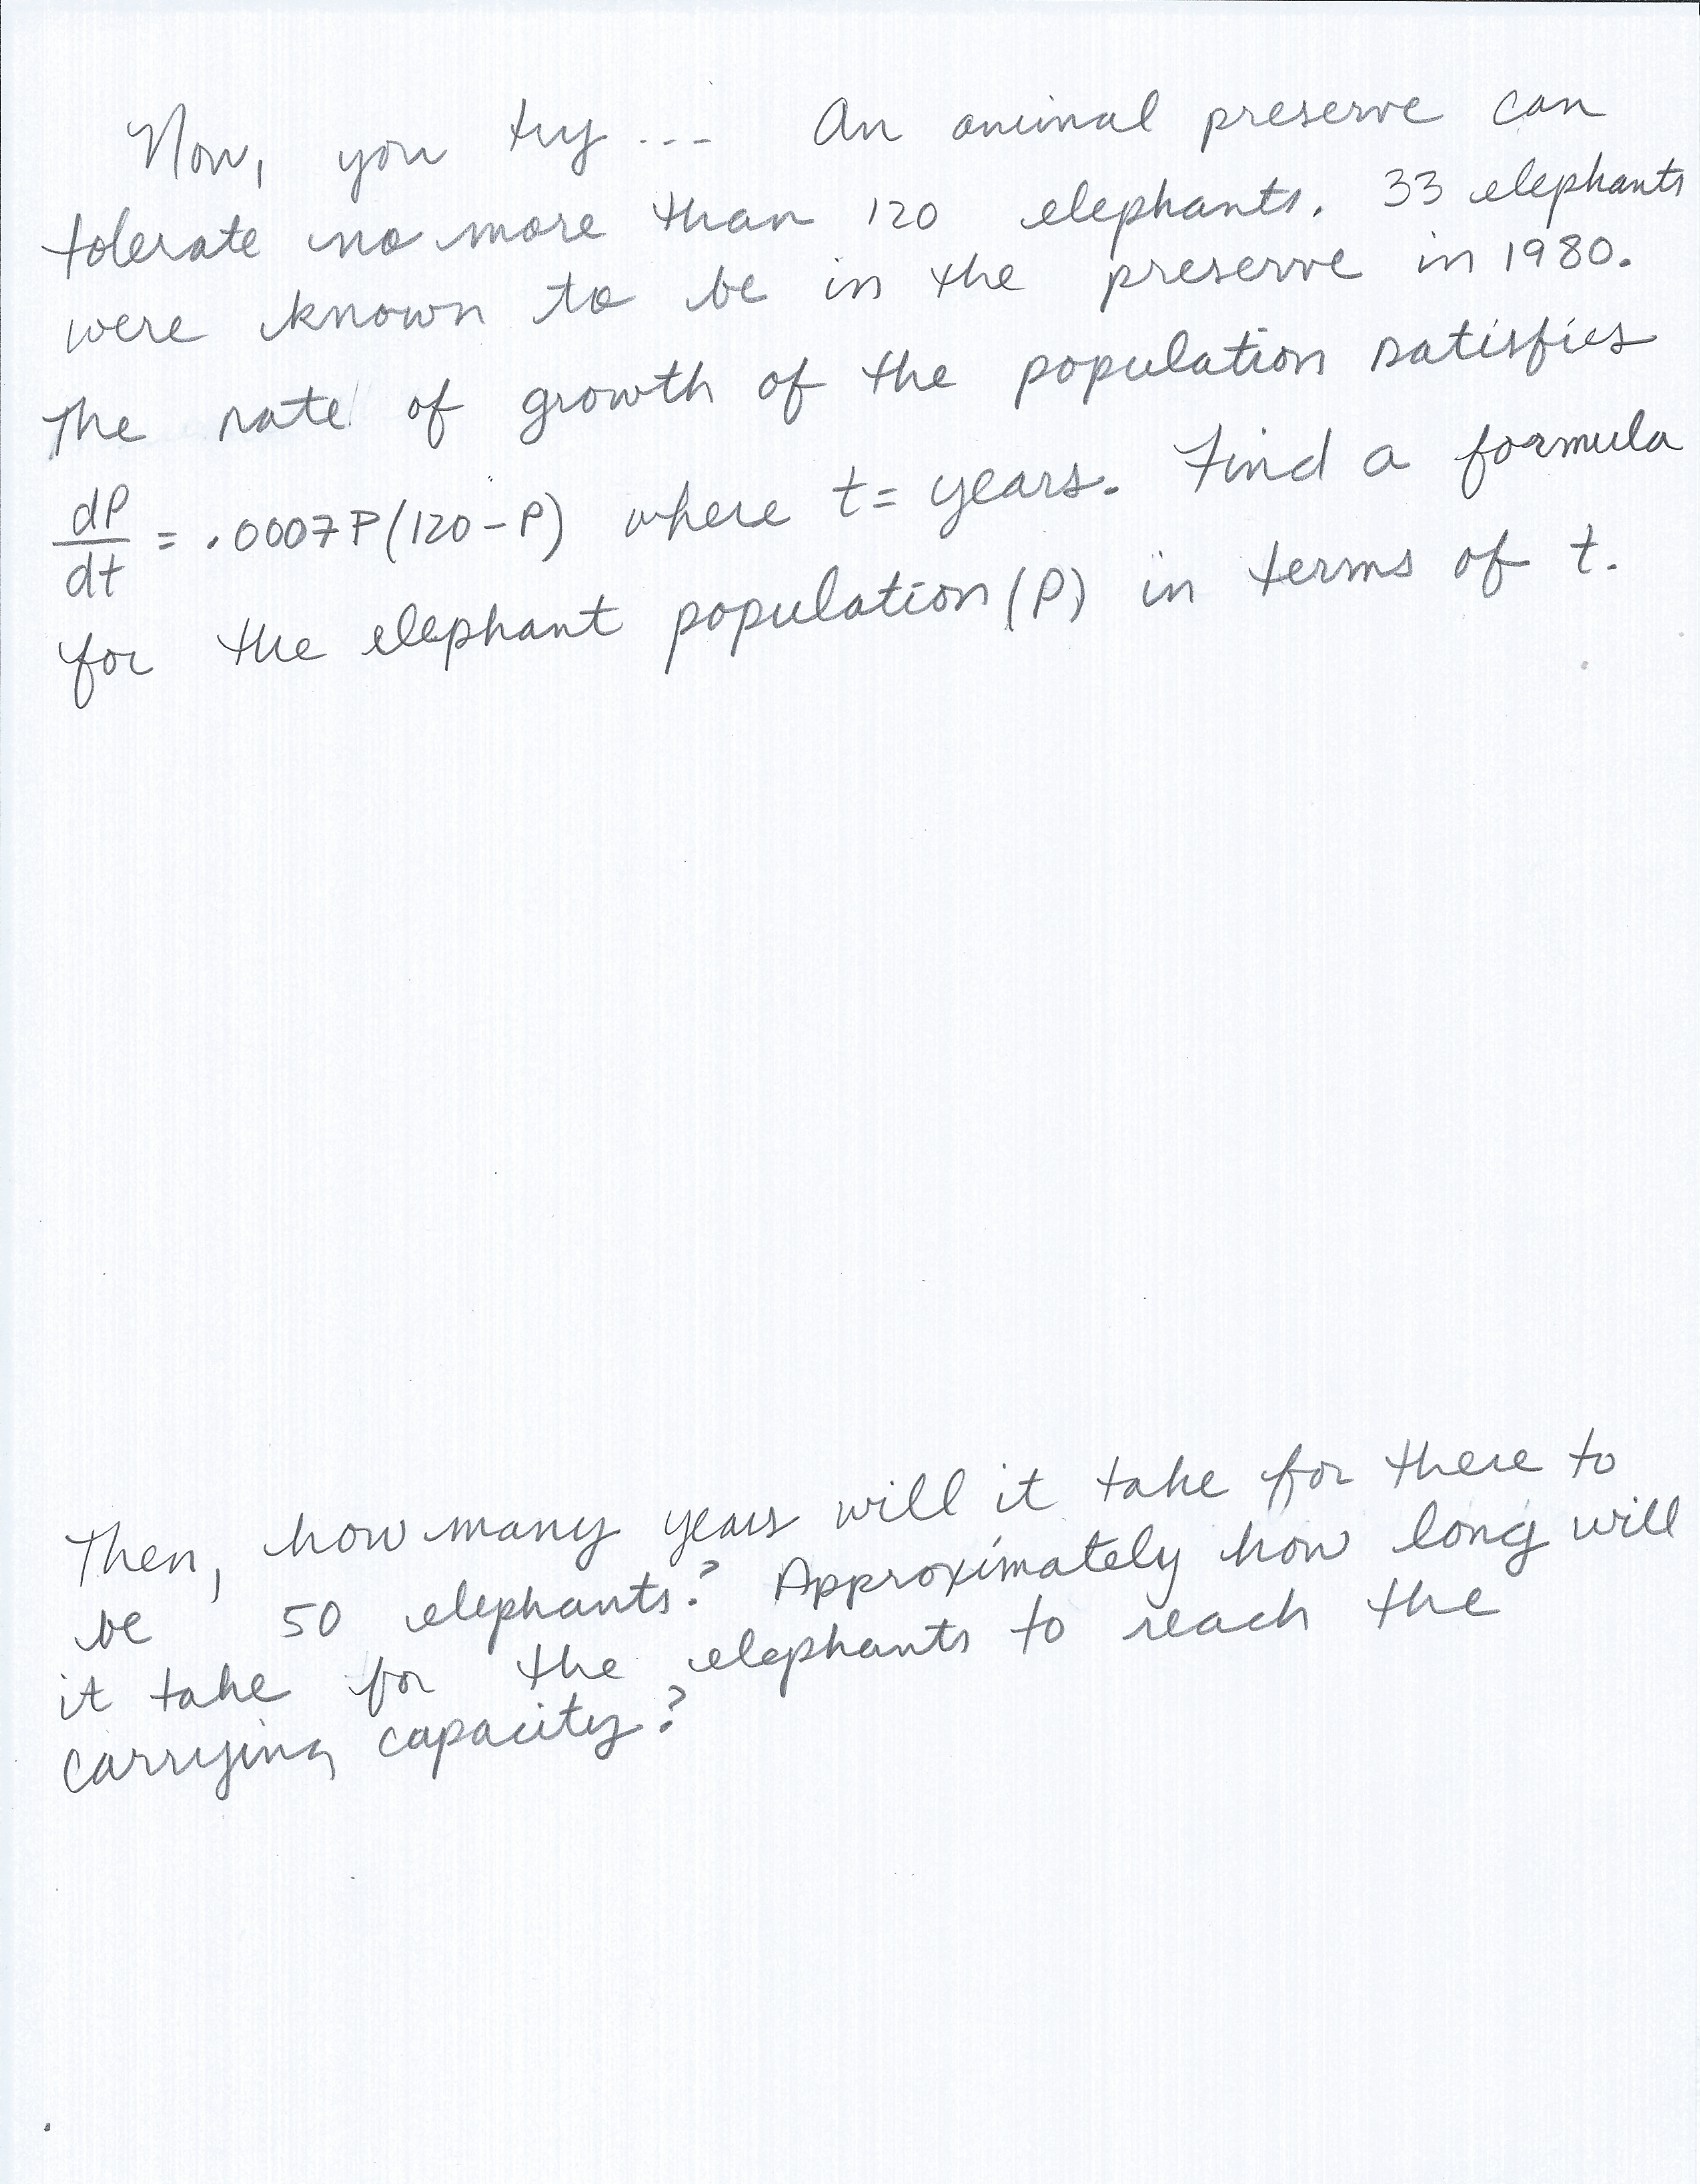 Now, you try... An animal preserve can
tolerate no more than 120 elephants. 33 elephants
were known to be in the preserve in 1980.
The rate of growth of the population satisfies
dP/dt = .0007P(120-P) where t= years. Find a formula
for the elephant population (P) in terms of t.
Then, how many years will it take for there to
be 50 elephants? Approximately how long will
it take for the elephants to reach the
carrying capacity?